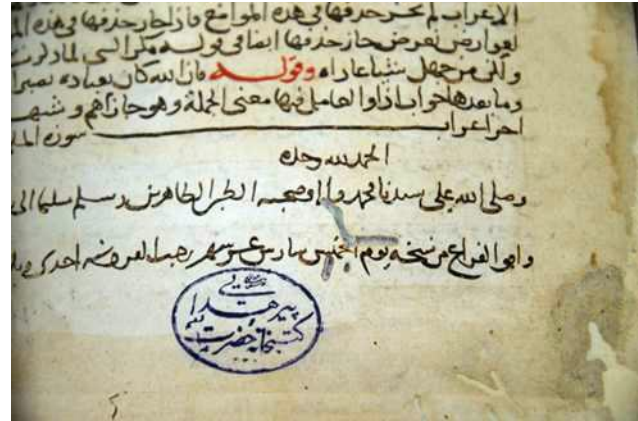 الاعراب لم يجز حذفها في هذه المواضع فان جاز حذفها في هذه
لعوارض تعرض جاز حذفها ايضا في قوله
ولكن من جهل شيئا عاداه وقوله فان الله كان بعباده بصيرا
وما بعدها جواب اذا والعامل فيها معنى الجملة وهو جازاهم و
اخر اعراب سورة
الحمد لله وحده
وصلى الله على سيدنا محمد واله وصحبه الطاهرين وسلم تسليما الى
وافق الفراغ من نسخه يوم الخميس سادس عشر شهر رجب الفرد سنة احدى
پير هدائى
كتبخانه حضرت